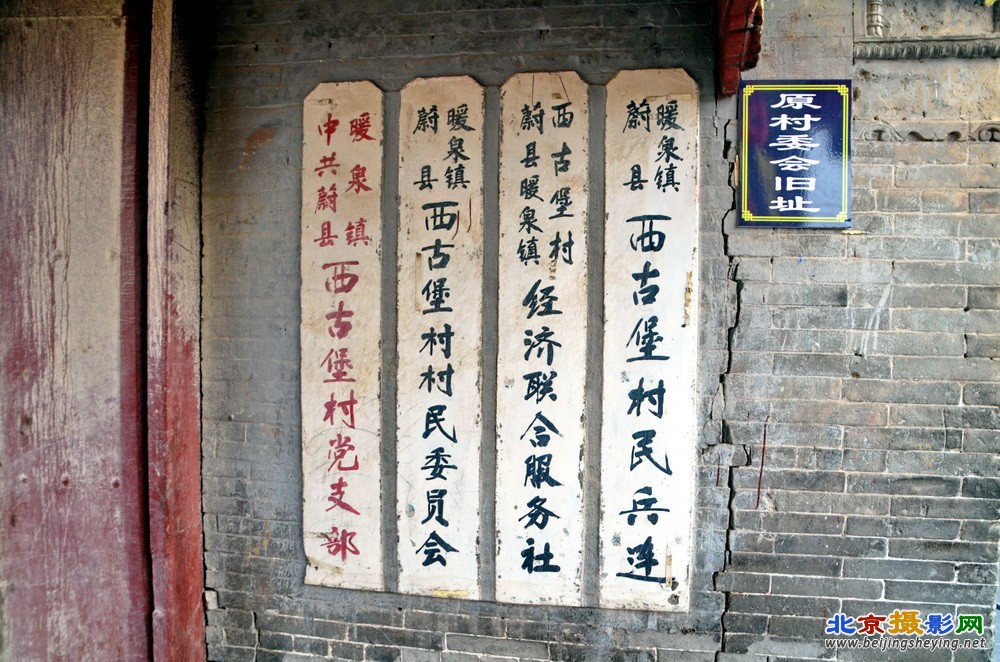 中共蔚县
暖泉镇
西古堡村党支部
蔚县
暖泉镇
西古堡村村民委员会
蔚县暖泉镇
西古堡村
经济联合服务社
蔚县
暖泉镇
西古堡村民兵连
原村委会旧址
北京摄影网
www.beijingsheying.net